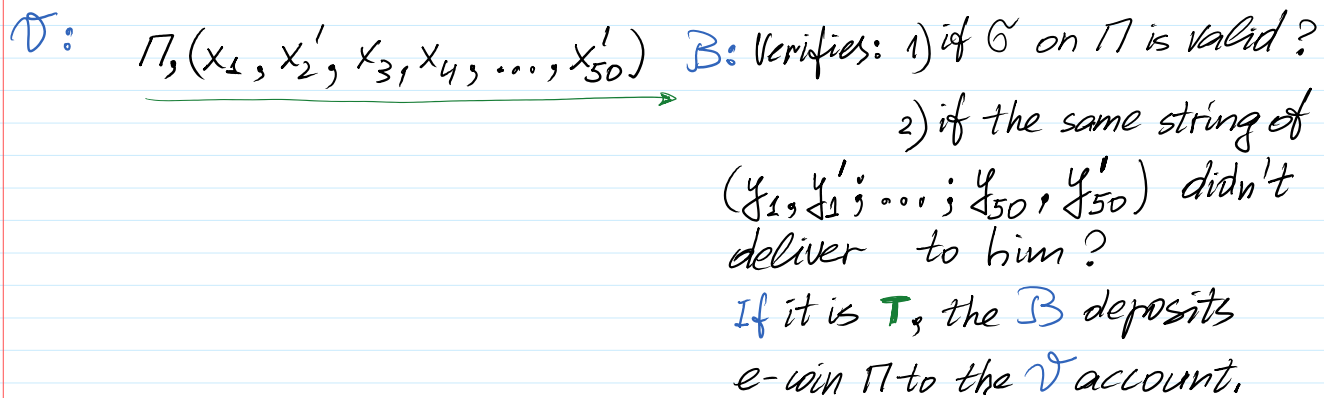 V: П, (x₁, x₂', x₃, x₄, ..., x₅₀') B: Verifies: 1) if σ on П is valid?
2) if the same string of
(y₁, y₁'; ... ; y₅₀, y₅₀') didn't
deliver to him?
If it is T, the B deposits
e-coin П to the V account.